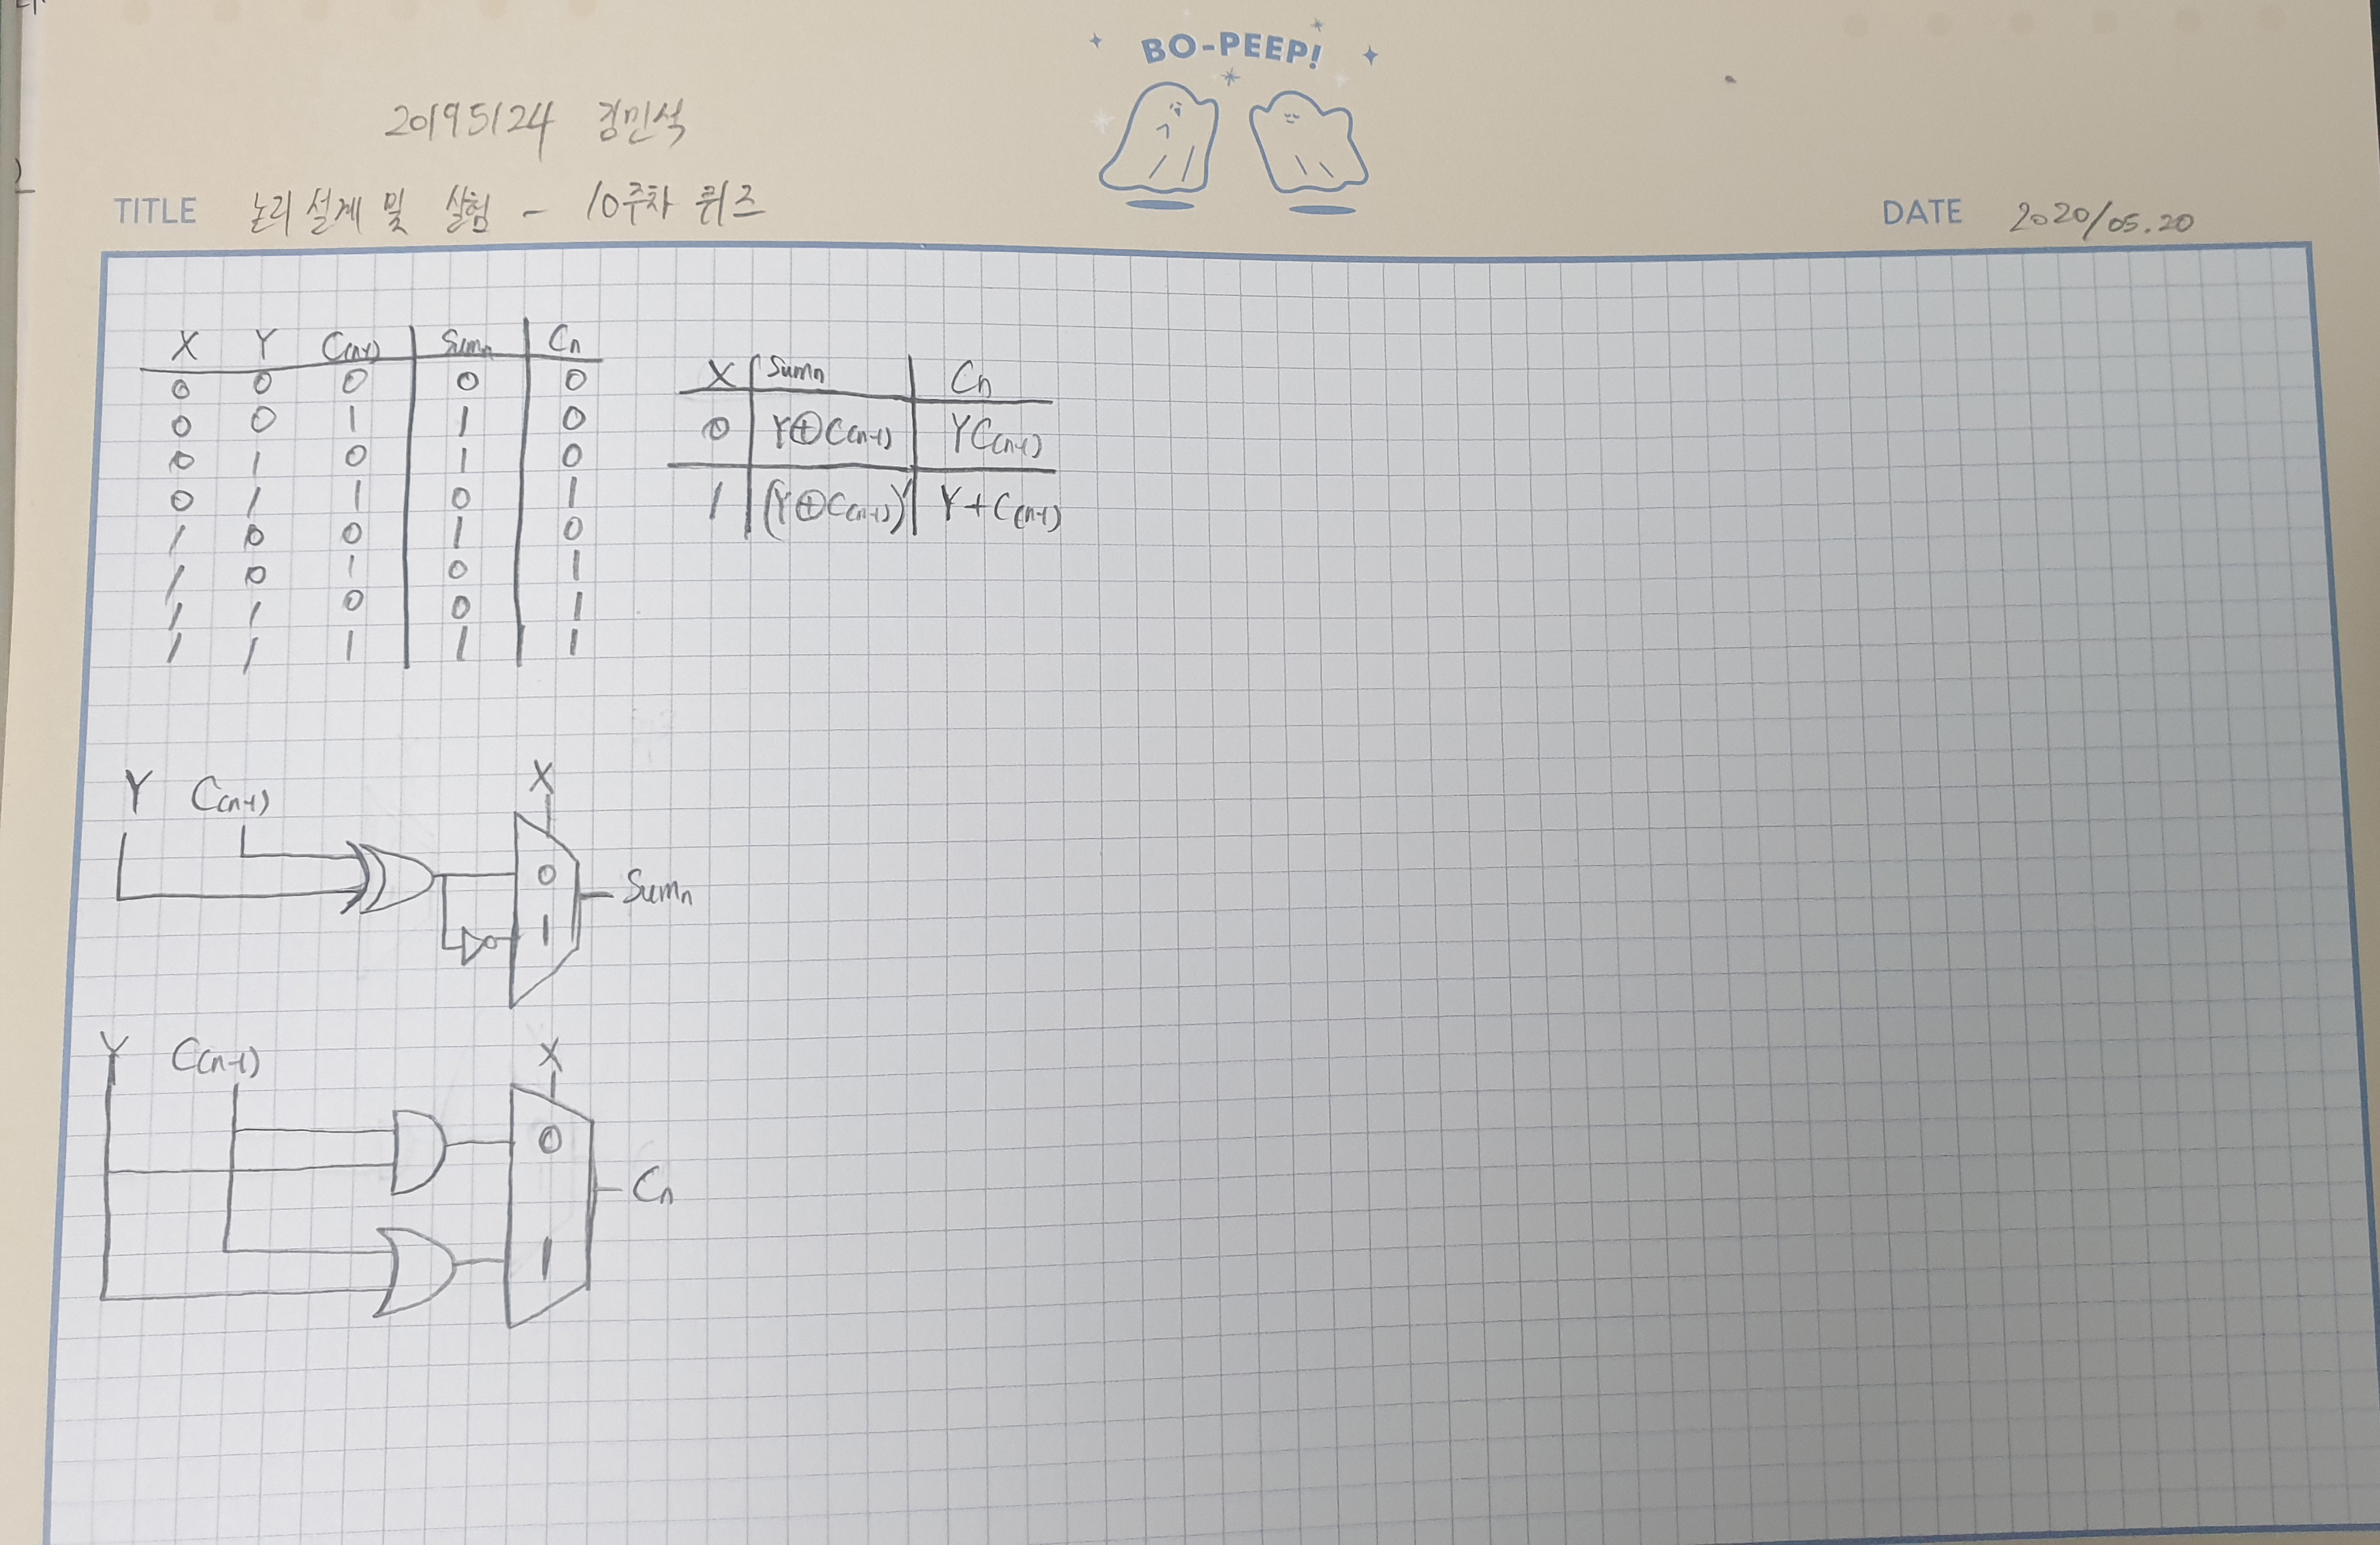 BO-PEEP!
20195124 김민석
TITLE 논리설계 및 실험 - 10주차 퀴즈
DATE 2020/05.20
X Y C(n-1) Sumn Cn
0 0 0 0 0
0 0 1 1 0
0 1 0 1 0
0 1 1 0 1
1 0 0 1 0
1 0 1 0 1
1 1 0 0 1
1 1 1 1 1
X Sumn Cn
0 Y⊕C(n-1) YC(n-1)
1 (Y⊕C(n-1))' Y+C(n-1)
Y C(n-1) X
0
1
Sumn
Y C(n-1) X
0
1
Cn